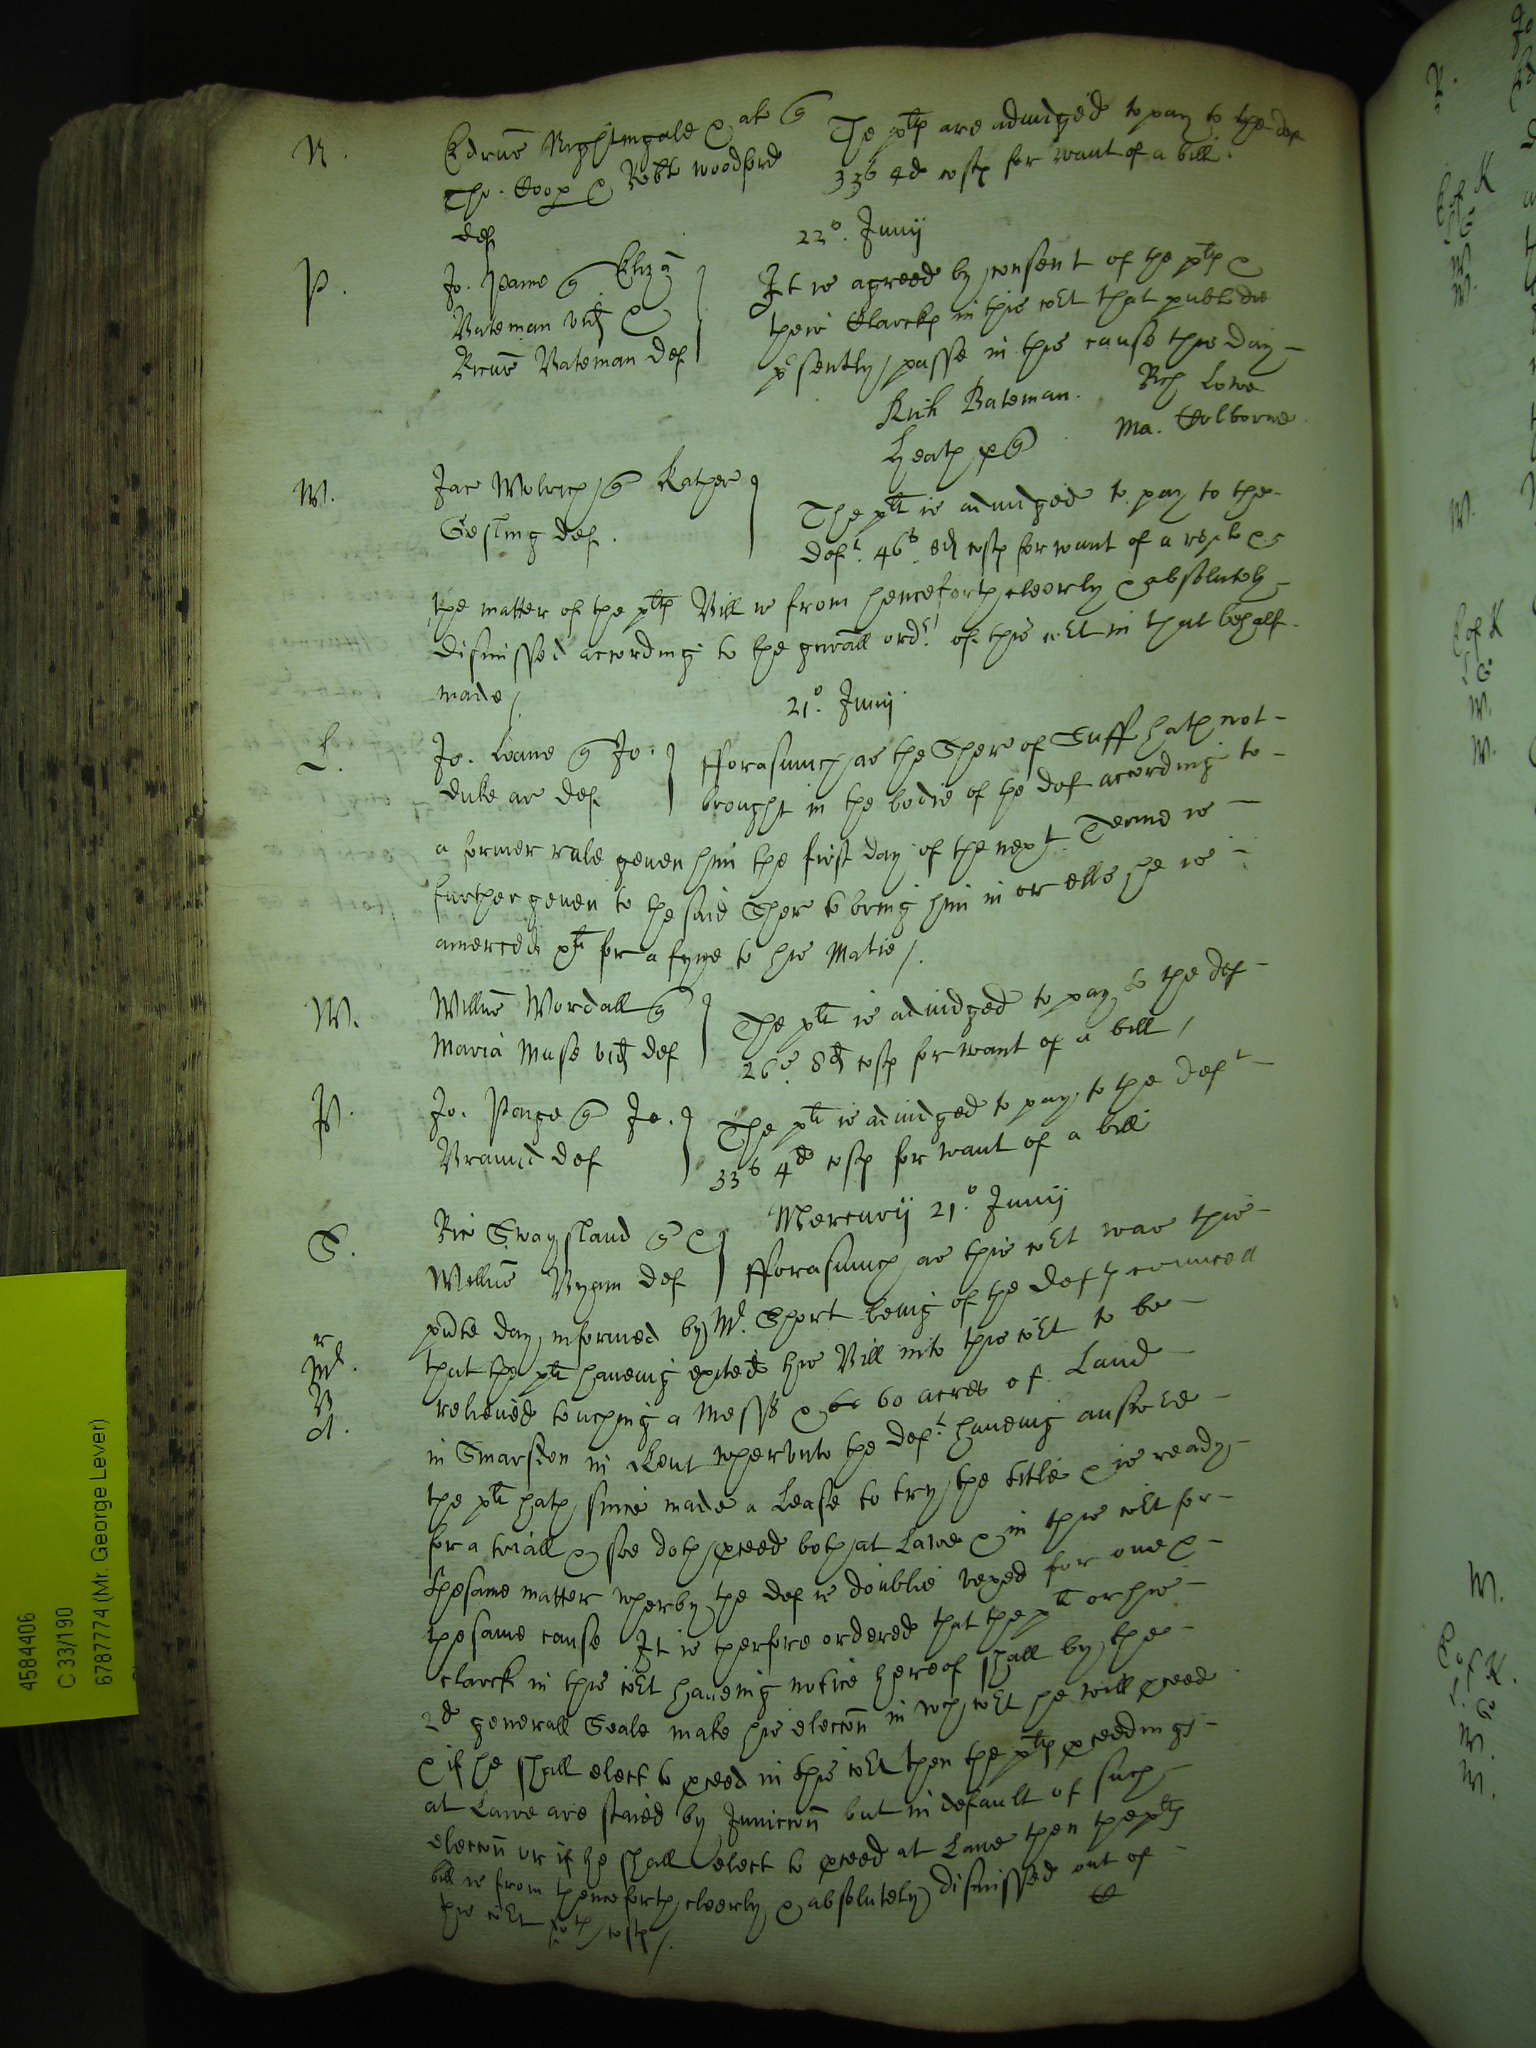 N. Edrus Nightingale & al q The plts are adiudged to pay to the def
Tho. Coop & Robt Woodford 33s 4d costs for want of a bill.
def
22o. Junij
P. Jo. Peame q Eliz a It is agreed by consent of the plts &
Bateman vid & their Clarcks in this co^rt that publ doe
Ricus Bateman def p^rsently passe in this cause this day
Rich Bateman. Rich Lowe
Heath p q Ma. Colborne
W. Jac Wolrich q Kather The plt is adiudged to pay to the
Gesling def. deft. 46s. 8d costs for want of a repl &
the matter of the plts Bill is from henceforth cleerly & absolutely
dismissed according to the gnrall ordr of this co^rt in that behalf
made/
21o. Junij
L. Jo. Loane q Jo. fforasmuch as the Sher of Suff hath not
duke ar def brought in the bodie of the def according to
a former rule geven him the first day of the next Terme is
further geven to the said Sher to bring him in or ells he is
amerced xli for a fyne to his Matie/.
W. Willus Wordall q The plt is adiudged to pay to the def
Maria Muse vid def 26s. 8d costs for want of a bill/
P. Jo. Penge q Jo. The plt is adiudged to pay to the deft
Braund def 33s 4d costs for want of a bill
Mercurij 21o. Junij
S. Ric Swaysland q &
Willus Bryan def fforasmuch as this co^rt was this
pnte day informed by Mr. Short being of the defts councell
r
Ml. that the plt haveing exited his Bill into this co^rt to be
B relieved touching a Mess & 60 acres of Land
d. in Smarden in Kent wherunto the deft. haveing answered
the plt hath since made a Lease to try the title & is ready
for a triall & soe doth pceed both at Lawe & in this co^rt for
thesame matter wherby the def is doublie vexed for one &
thesame cause It is therfore ordered that the plt or his
Clarck in this co^rt haveing notice hereof shall by the
2d generall Seale make his eleccon in wch co^rt he will pceed
& if he shall elect to pceed in this co^rt then the plts pceedings
at Lawe are staied by Iniunccon but in default of such
eleccon or if he shall elect to pceed at Lawe then the plts
bill is from thenceforth cleerly & absolutely dismissed out of
this co^rt wth costs/.
4584406
C 33/190
6787774 (Mr. George Lever)